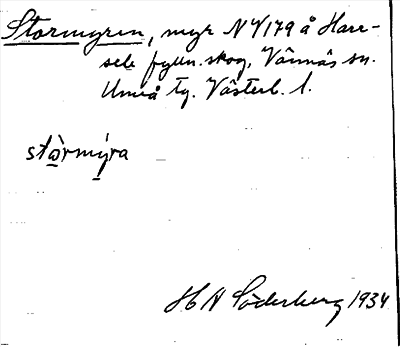 Stormyren, myr NV179 å Harr-
sele fylln. skog, Vännäs sn.
Umeå tg. Västerb. l.
stòrmýra
H A Söderberg 1934